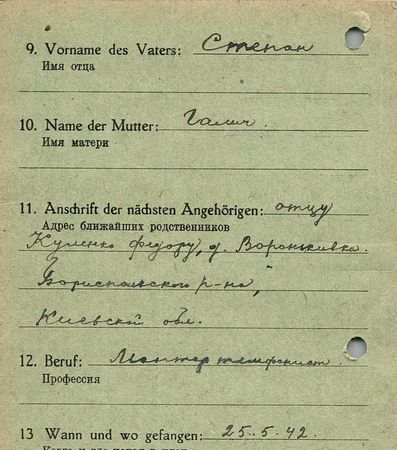 9. Vorname des Vaters: Степан
Имя отца
10. Name der Mutter: Галич
Имя матери
11. Anschrift der nächsten Angehörigen: отцу
Адрес ближайших родственников
Куленко Федору, д. Вороньковка
Бориспольского р-на,
Киевской обл.
12. Beruf: Монтер телефонист.
Профессия
13 Wann und wo gefangen: 25.5.42.